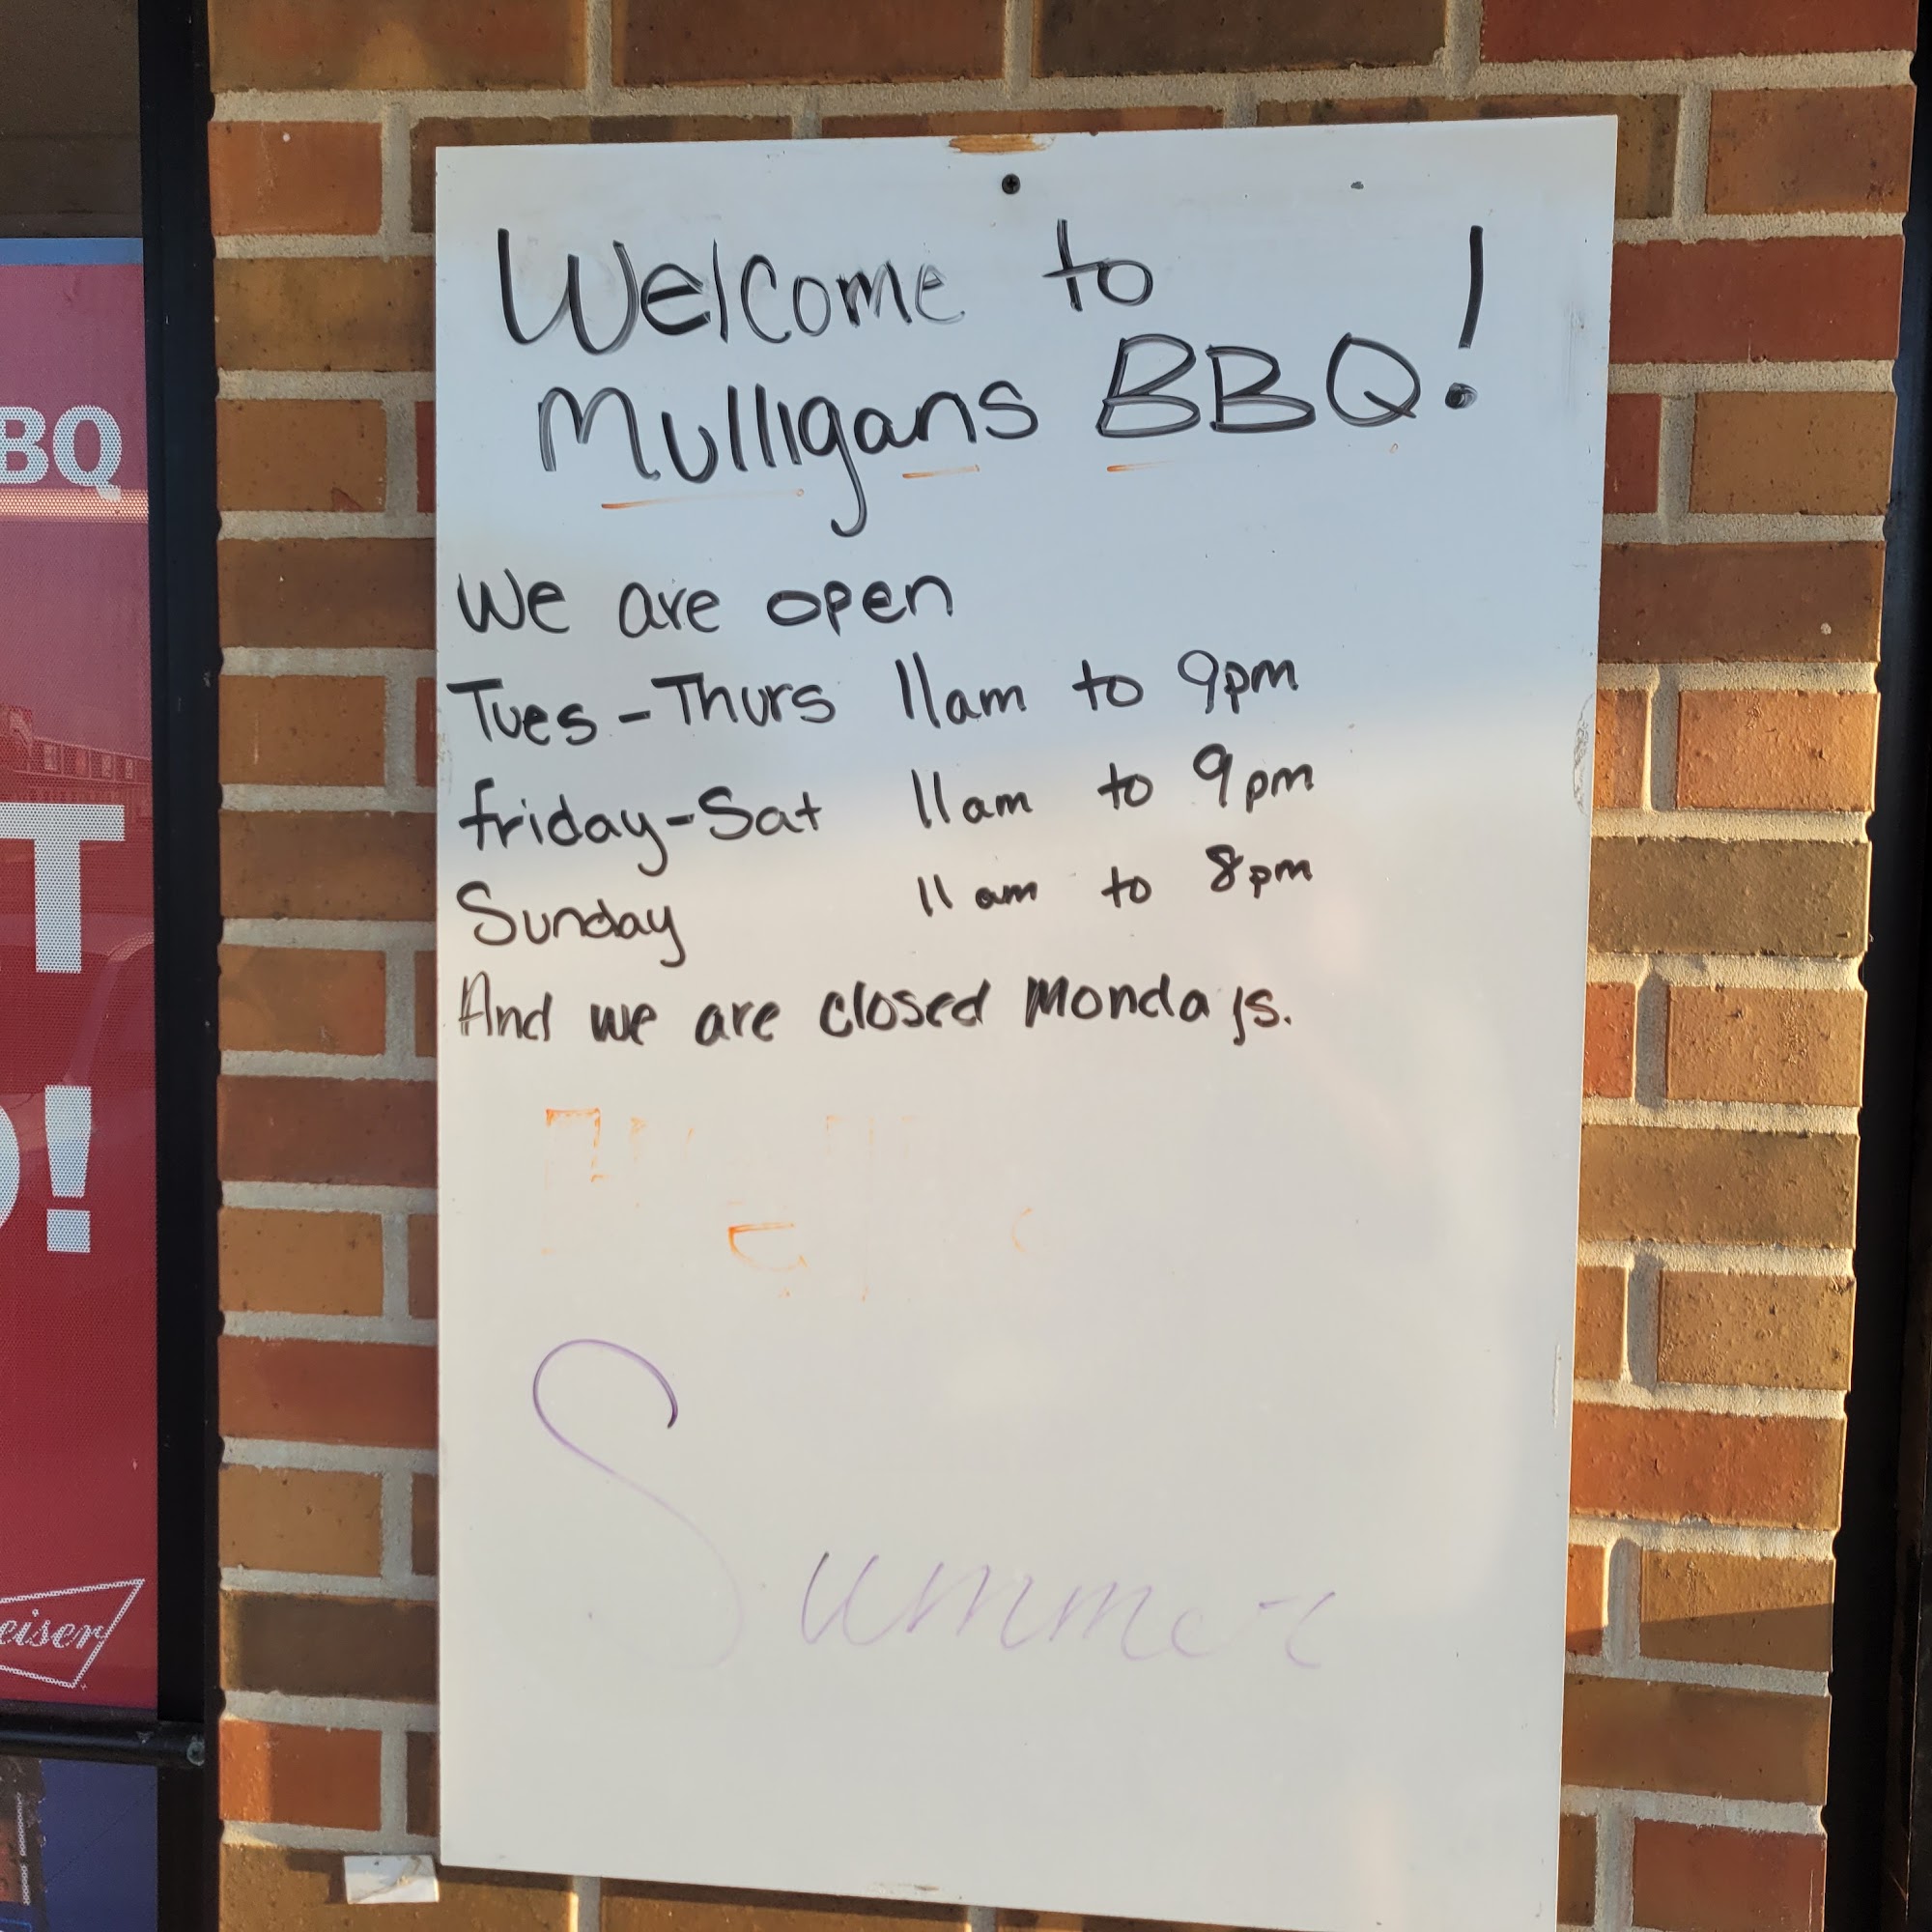 Welcome to
Mulligans BBQ!
We are open
Tues-Thurs 11am to 9pm
friday-Sat 11am to 9pm
Sunday 11am to 8pm
And we are closed Mondays.
Summer
BQ
T
!
eiser